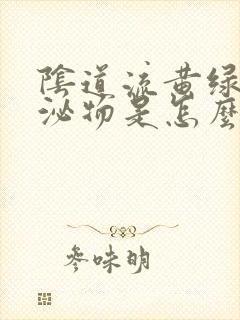 陰道流黃綠
泌物是怎麼
參味明